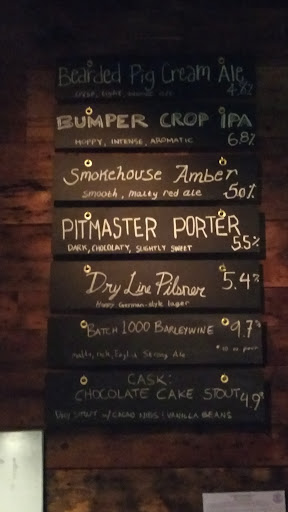 Bearded Pig Cream Ale
4.8%
BUMPER CROP IPA
HOPPY, INTENSE, AROMATIC 6.8%
Smokehouse Amber
smooth, malty red ale 5.0%
PITMASTER PORTER
DARK, CHOCOLATY, SLIGHTLY SWEET 5.5%
Dry Line Pilsner 5.4%
German-style lager
BATCH 1000 BARLEYWINE 9.7%
malty, rich, English Strong Ale *10 oz pour
CASK:
CHOCOLATE CAKE STOUT 4.9%
STOUT W/ CACAO NIBS & VANILLA BEANS